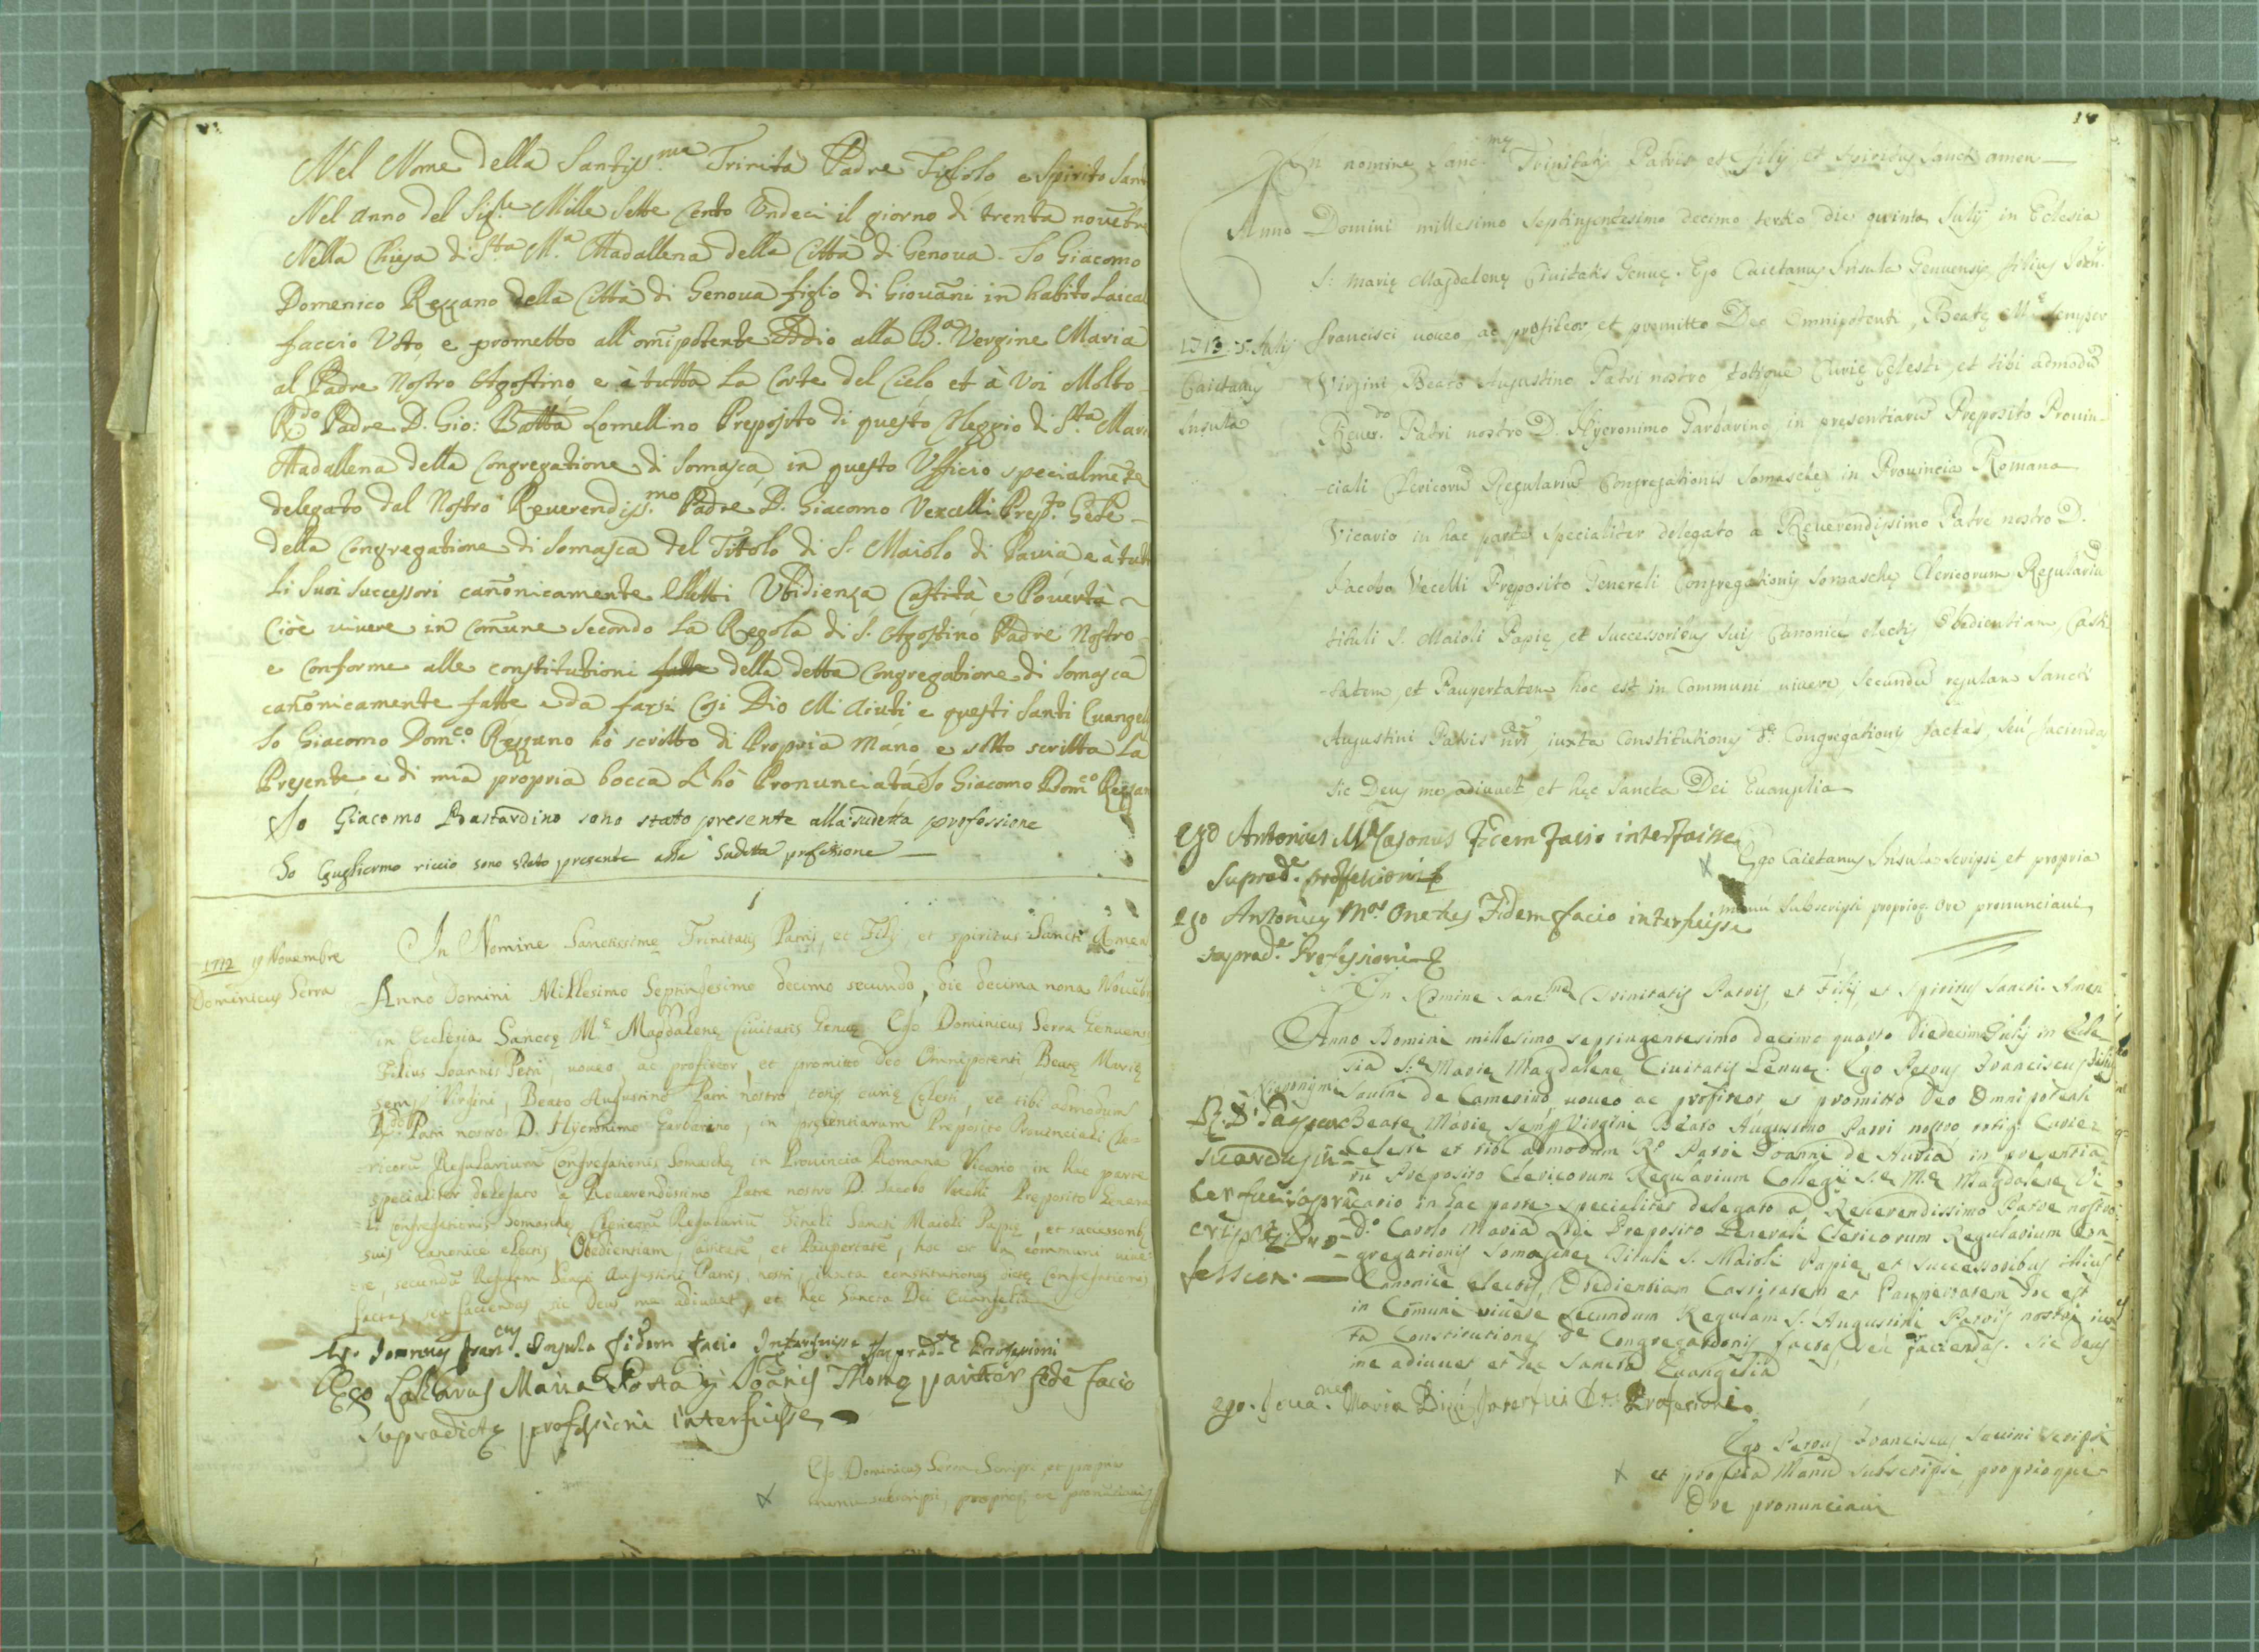 Nel Nome della Santiss.ma Trinità Padre Figliolo e Spirito Sant
Nel anno del Sig.re Mille Sette Cento Undeci il giorno di trenta nouẽbre
Nella Chiesa di S.ta M.a Madallena della Città di Genoua. Io Giacomo
Domenico Rezzano della Città di Genoua figlio di Giouãni in habito Laical
faccio Voto, e prometto all'omĩpotente Iddio alla B.a Vergine Maria
al Padre Nostro Agostino, e à tutta La Corte del Cielo, et à Voi Molto
R.do Padre D. Gio: Batta Lomellino Preposito di questo Colleggio di S.ta Mari
Madallena della Congregatione di Somasca, in questo Vfficio specialmẽte
delegato dal Nostro Reuerendiss.mo Padre D. Giacomo Vecelli Prep.to Gẽle
della Congregatione di Somasca del Titolo di S. Maiolo di Pauia, e à tutti
Li Suoi Successori cañonicamente Eletti Vbidienza, Castità, e Pouertà
Cioè viuere in Comune secondo La Regola di S. Agostino Padre Nostro
e Conforme alle constitutioni fatte della detta Congregatione di Somasca
cañonicamente fatte, e da farsi. Cosi Dio Mi aiuti e questi Santi Euangeli
Io Giacomo Dom.co Rezzano hò scritto di Propria mano, e sotto scritta La
Presente, e di mia propria bocca L'hò Pronunciata. Io Giacomo Dom.co Rezzan
Io Giacomo Bastardino sono stato presente alla sudetta professione
Io Guglielmo riccio sono stato presente alla sudetta professione
1712 19 Nouembre
Dominicus Serra
In Nomine Sanctissimę Trinitatis Patris, et Filij, et spiritus Sancti Amen
Anno Domini Millesimo Septingesimo decimo secundo, die decima nona Nouẽbr
in Ecclesia Sanctę M.ę Magdalenę Ciuitatis Genuę Ego Dominicus Serra Genuens
Filius Joannis Petri, uoueo, ac profiteor, et promitto Deo Omnipotenti, Beatę Marię
semp Virgini, Beato Augustino Patri nostro, totiq curię Cęlesti, et tibi admodum
R.do Patri nostro D. Hyeronimo Garbarino, in pręsentiarum Pręposito Prouinciali Cle=
ricorũ Regularium Congregationis Somaschę in Prouincia Romana Vicario in hac parte
specialiter delegato à Reuerendissimo Patre nostro D. Jacobo Vecelli Pręposito Genera
li Congregationis Somaschę Clericorũ Regulariũ Tituli Sancti Maioli Papię, et successorib
suis canonice electis, Obedientiam, Castitatẽ, et Paupertatẽ, hoc est in communi uiue=
re, secundũ Regulam Sancti Augustini Patris nostri, iuxta constitutiones dictę Congregationis
factas, seu faciendas, sic Deus me adiuuet, et hęc Sancta Dei Euangelia
Ego Insula fidem facio Interfuisse suprad.tę Professioni
Ego Lazarus Maria Costa q Joãnis Thomę pariter fidẽ facio
supradictę professioni interfuisse
Ego Dominicus Serra Scripsi, et propria
manu subscripsi, proprioq ore pronũciaui
14
In nomine Sanc.mę Trinitatis Patris et Filij et Spiritus Sancti amen
Anno Domini millesimo Septingentesimo decimo tertio die quinta Julij in Eclesia
S: Marię Magdalenę Ciuitatis Genuę. Ego Caietanus Insula Genuensis, filius Joãn.
1713: 5. Julij
Caietanus
Insula
Francisci uoueo, ac profiteor, et promitto Deo Omnipotenti, Beatę M.ę Semper
Virgini, Beato Augustino Patri nostro totique Curię Cęlesti, et tibi admodũ
Reuer.do Patri nostro D. Hyeronimo Garbarino in pręsentiarũ Pręposito Prouin-
-ciali Clericorũ Regulariũ Congregationis Somaschę in Prouincia Romana
Vicario in hac parte specialiter delegato a Reuerendissimo Patre nostro D.
Jacobo Vecelli Pręposito Generali Congregationis Somaschę Clericorum Regulariũ
tituli S. Maioli Papię, et Successoribus suis Canonicè electis Obedientiam, Casti
-tatem, et Paupertatem hoc est in Communi uiuere, secundũ regulam Sancti
Augustini Patris nri, iuxta Constitutiones d.ę Congregationis factas, seù faciendas
sic Deus me adiuuet, et hęc Sancta Dei Euangelia
Ego Antonius M.a Casonus Fidem facio interfuisse
Suprad.ę professioni
Ego Caietanus Insula scripsi, et propria
manũ subscripsi proprioq ore pronunciaui
ego Antonius M.a Fidem facio interfuisse
suprad.ę Professioni
In Nomine Sanc.mę Trinitatis Patris, et Filij, et Spiritus Sancti. Amen
Anno Domini millesimo septingentesimo decimo quarto Die decima Julij in Eccle
sia S.ę Marię Magdalenę Ciuitatis Genuę. Ego Petrus Franciscus filius
Hieronymi Sauini de Camerino uoueo ac profiteor et promitto Deo Omnipotenti
Beatę Marię semp Virgini Beato Augustino Patri nostro totiq. Curię
Celesti et tibi admodum R.do Patri Joanni de Auria in presentia
rũ Preposito Clericorum Regularium Collegij S.ę M.ę Magdalenę Vi
cario in hac parte specialiter delegato a Reuerendissimo Patre nostro
D.o Carolo Maria Lodi Preposito Generali Clericorum Regularium Con
gregationis Somaschę Tituli S. Maioli Papię, et Successoribus illius
Canonicè electis, Obedientiam Castitatem et Paupertatem hoc est
in Cõmuni viuere secundum Regulam S. Augustini Patris nostri iux
ta Constitutiones d.ę Congregationis factas, seu faciendas. Sic Deus
me adiuuet et hęc Sancta Euangelia
ego. Joua.nes Maria interfui Professioni
Ego Petrus Franciscus Sauini scripsi
et propria Manũ subscripsi, proprioque
Ore pronunciaui